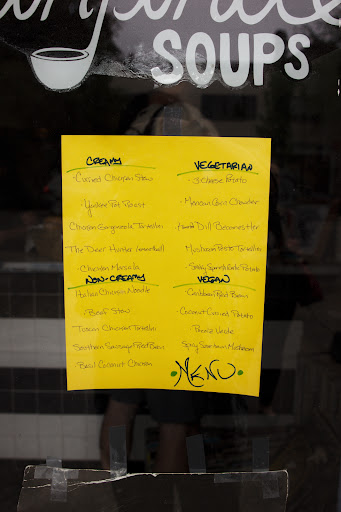 SOUPS
CREAMY
Curried Chicken Stew
Yankee Pot Roast
Chicken Gorgonzola Tortellini
The Deer Hunter
Chicken Masala
NON-CREAMY
Italian Chicken Noodle
Beef Stew
Tuscan Chicken Tortellini
Southern Sausage Red Bean
Basil Coconut Chicken
VEGETARIAN
3 Cheese Potato
Mexican Corn Chowder
Dill
Mushroom Potato Tortellini
Spicy Potato
VEGAN
Caribbean Red Bean
Coconut Curried Potato
Verde
Spicy Mushroom
MENU